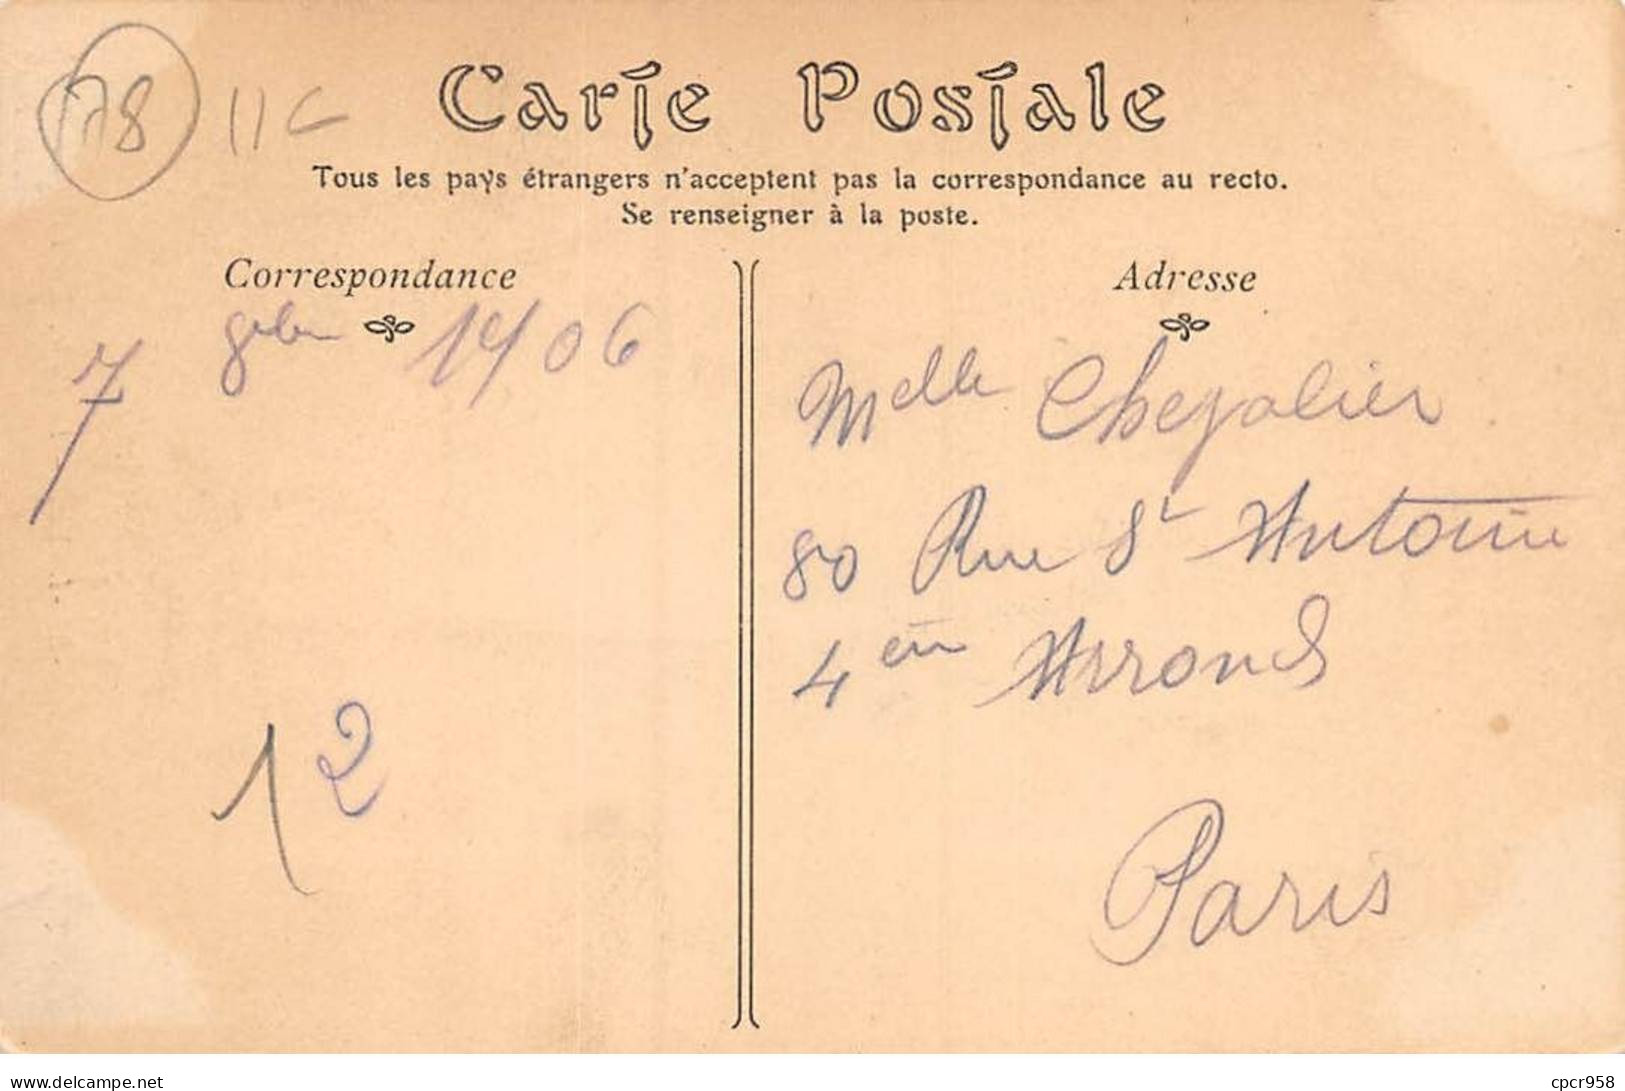 78 11C
Carte Postale
Tous les pays étrangers n'acceptent pas la correspondance au recto.
Se renseigner à la poste.
Correspondance
7 8bre 1906
12
Adresse
Melle Chevalier
80 Rue St Antoine
4em Arrond
Paris
www.delcampe.net
cpcr958